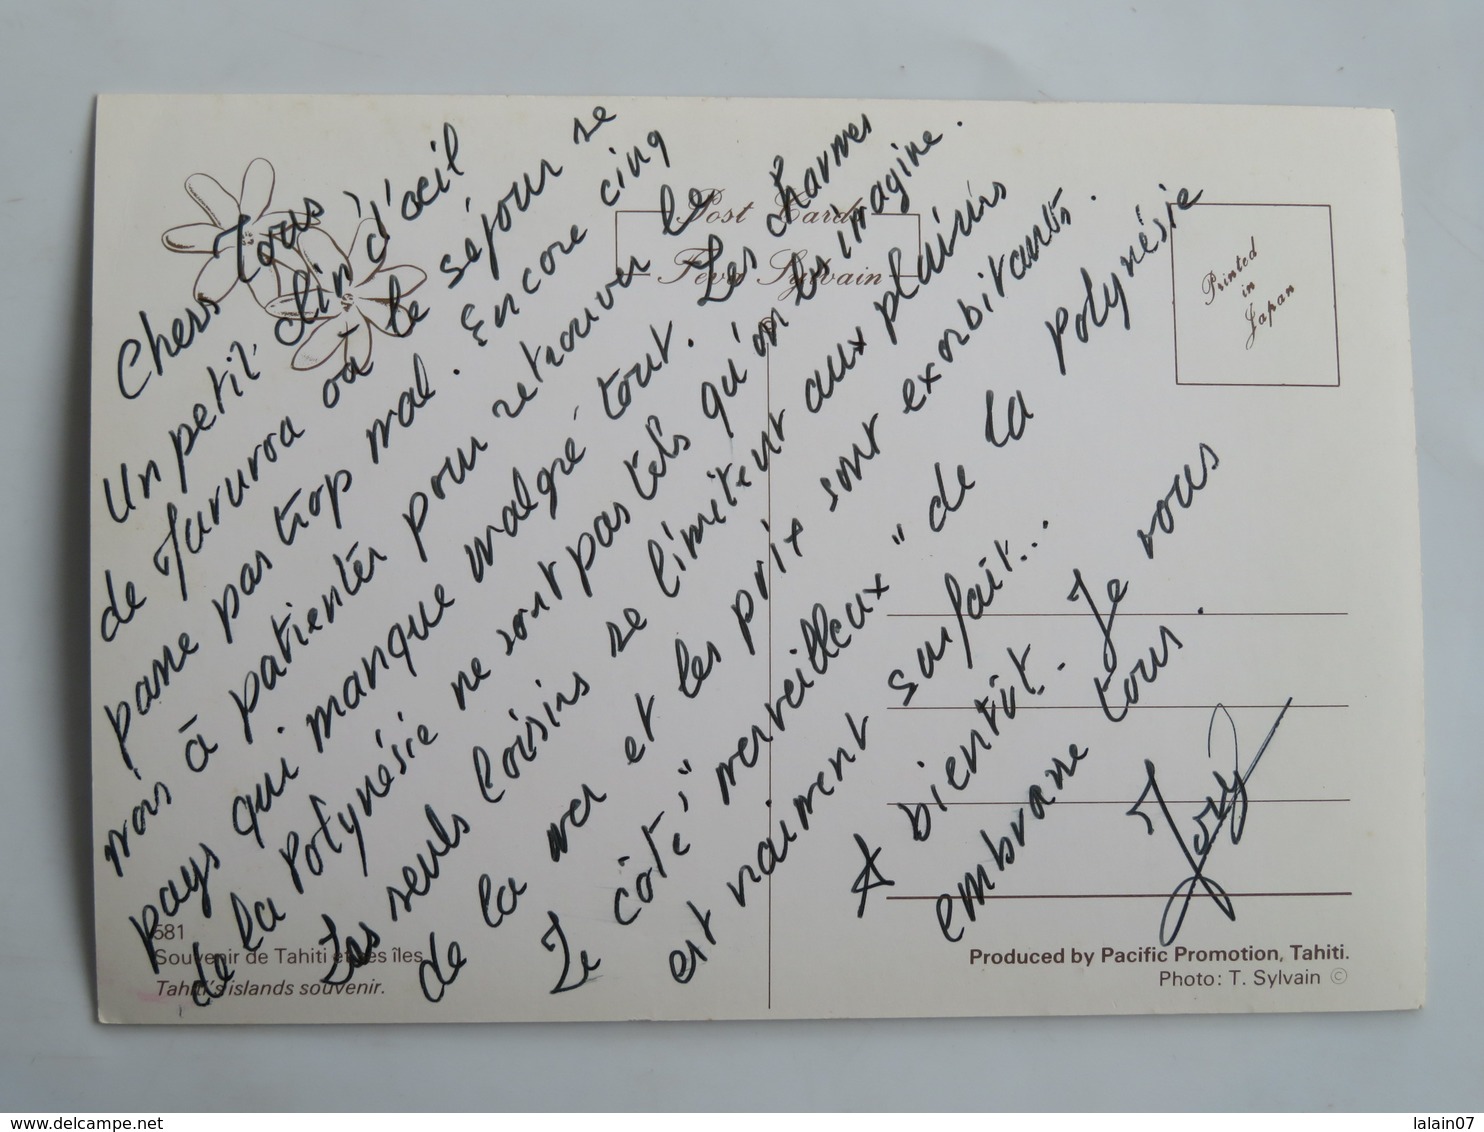 Chers Tous
Un petit clin d'oeil
de Mururoa où le séjour se
passe pas trop mal. Encore cinq
mois à patienter pour retrouver le
pays qui manque malgré tout. Les charmes
de la Polynésie ne sont pas tels qu'on les imagine.
Les seuls loisirs se limitent aux plaisirs
de la mer et les prix sont exorbitants.
Le côté "merveilleux" de la Polynésie
est vraiment surfait...
A bientôt. Je vous
embrasse tous.
Post Card
Teva Sylvain
Printed
in
Japan
581
Souvenir de Tahiti et ses îles
Tahiti's islands souvenir.
Produced by Pacific Promotion, Tahiti.
Photo: T. Sylvain ©
www.delcampe.net
lalain07